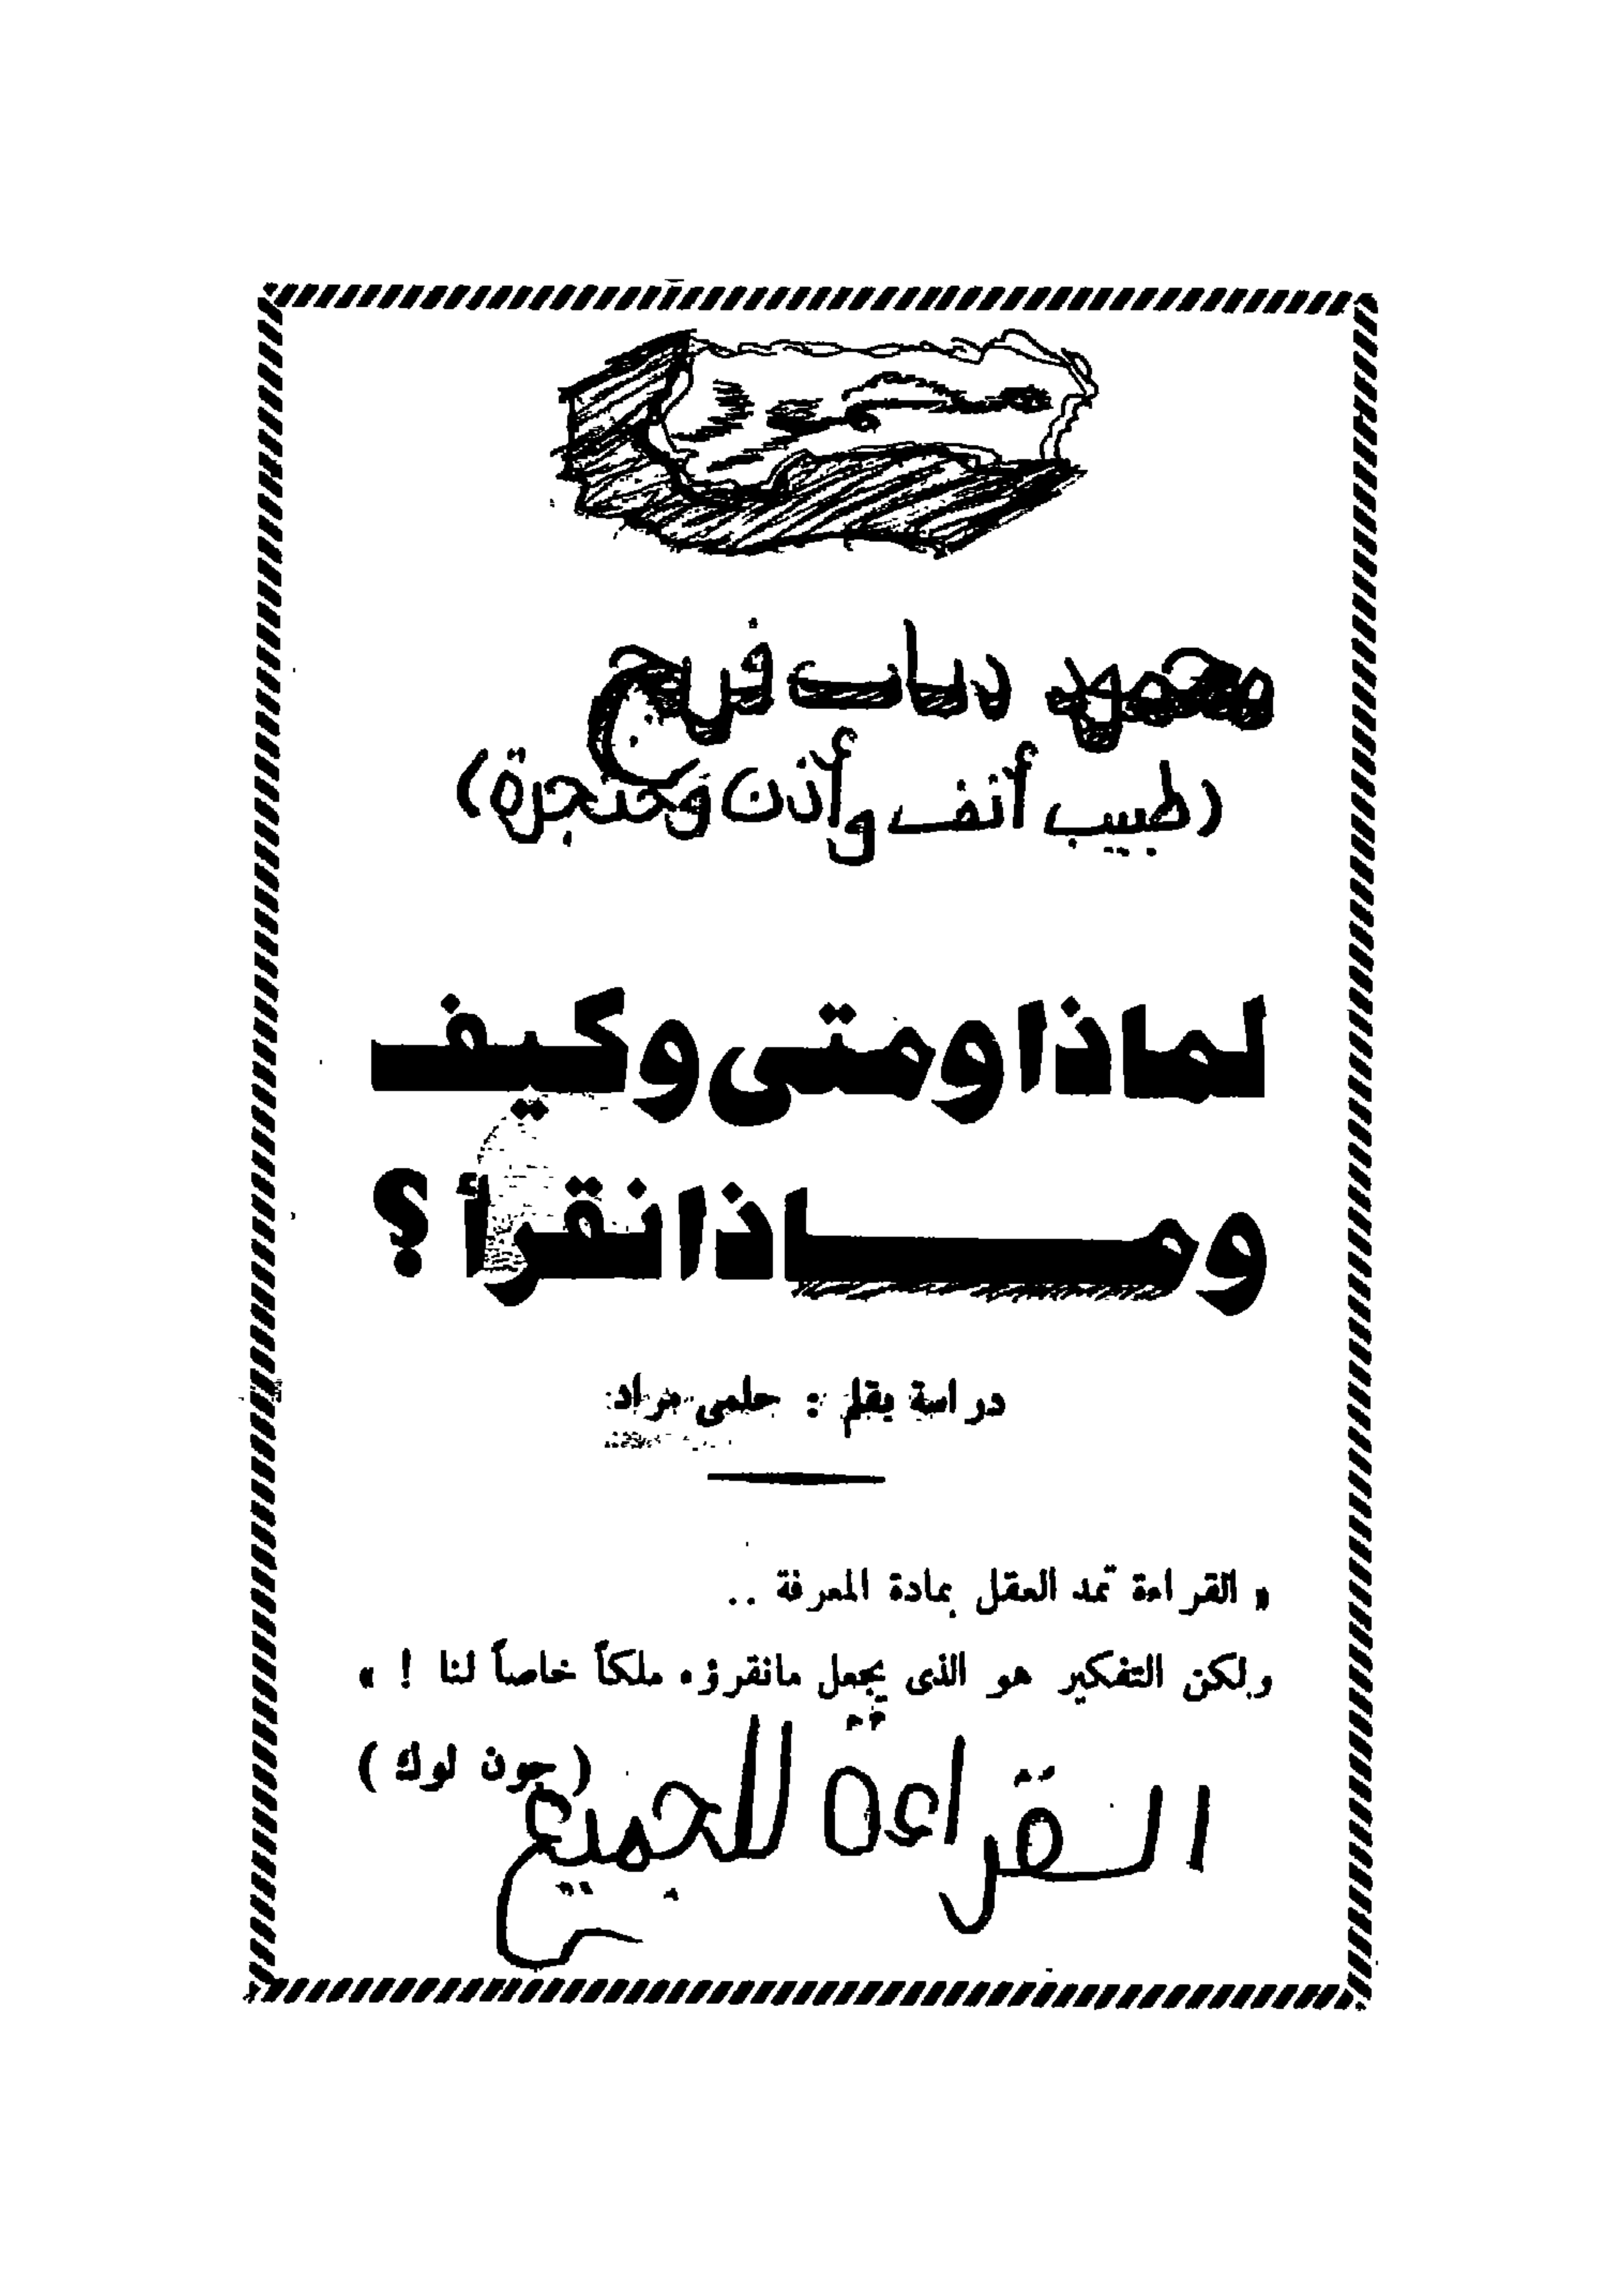 محمود دياب فرج
(طبيب أنف وأذن وحنجرة)
لماذا ومتى وكيف
وماذا نقرأ ؟
دراسة بقلم : حلمى مراد
« القراءة تمد العقل بمادة المعرفة ..
ولكن التفكير هو الذى يجعل مانقرؤه ملكاً خاصاً لنا ! »
( جون لوك )
القراءة للجميع